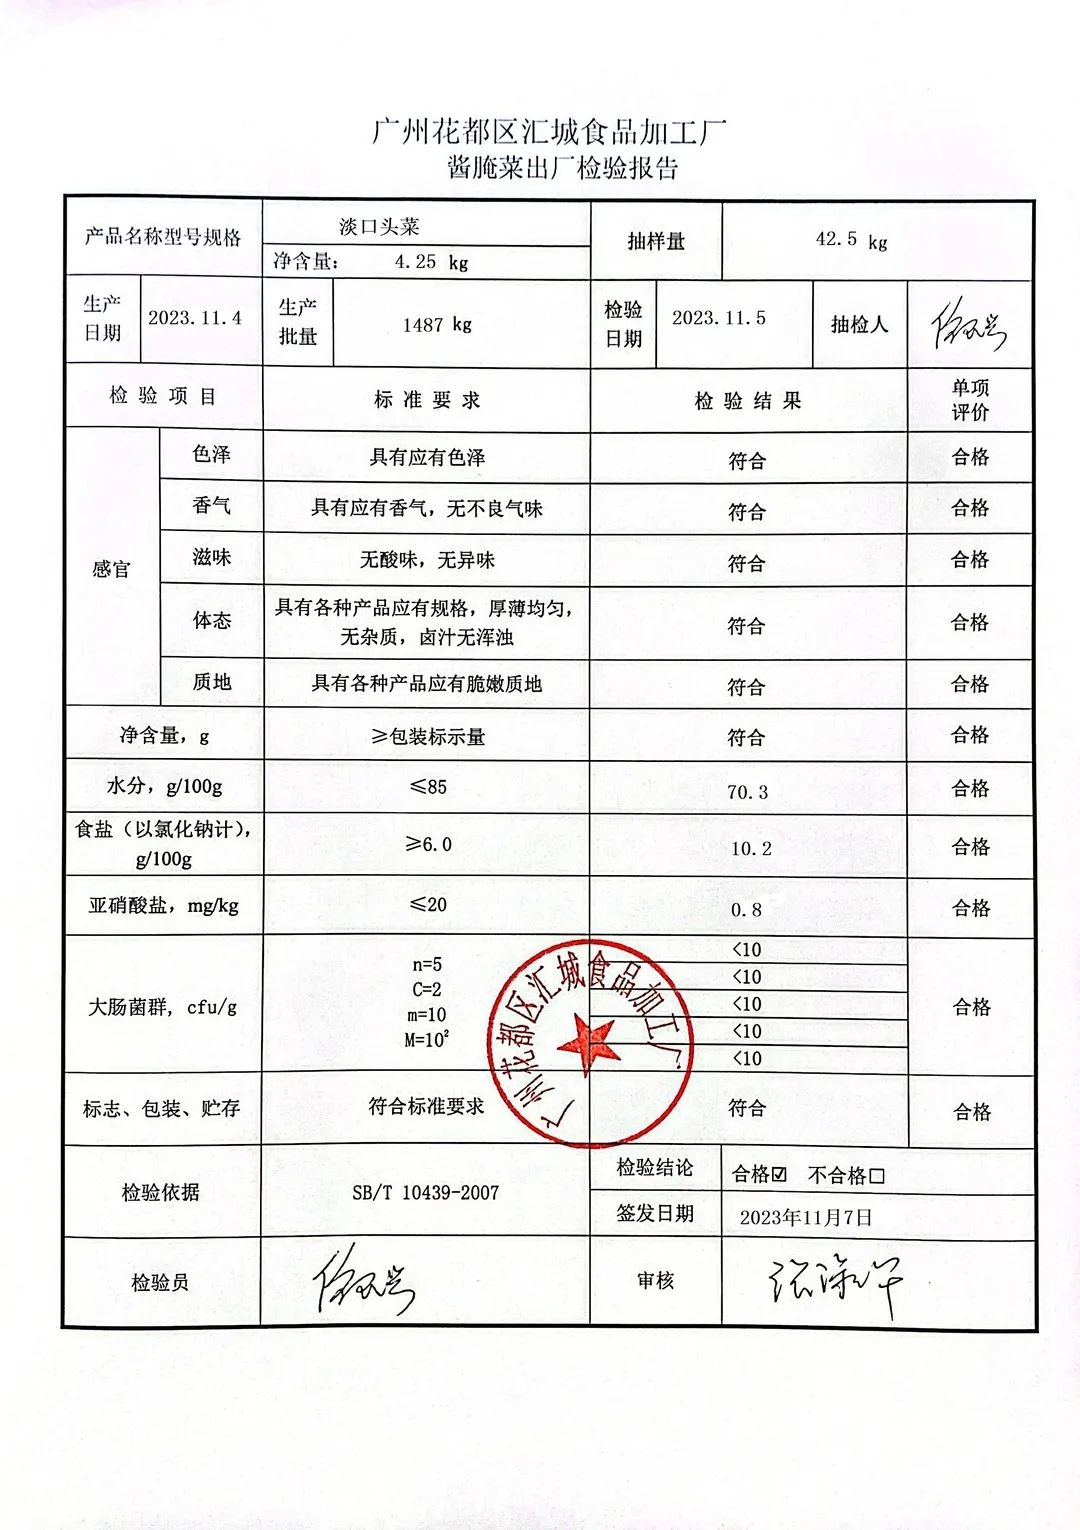 广州花都区汇城食品加工厂
酱腌菜出厂检验报告
产品名称型号规格
淡口头菜
净含量： 4.25 kg
抽样量
42.5 kg
生产
日期
2023.11.4
生产
批量
1487 kg
检验
日期
2023.11.5
抽检人
检 验 项 目
标 准 要 求
检 验 结 果
单项
评价
感官
色泽
具有应有色泽
符合
合格
香气
具有应有香气，无不良气味
符合
合格
滋味
无酸味，无异味
符合
合格
体态
具有各种产品应有规格，厚薄均匀，
无杂质，卤汁无浑浊
符合
合格
质地
具有各种产品应有脆嫩质地
符合
合格
净含量，g
≥包装标示量
符合
合格
水分，g/100g
≤85
70.3
合格
食盐（以氯化钠计），
g/100g
≥6.0
10.2
合格
亚硝酸盐，mg/kg
≤20
0.8
合格
大肠菌群，cfu/g
n=5
C=2
m=10
M=10²
<10
<10
<10
<10
<10
合格
广州花都区汇城食品加工厂
标志、包装、贮存
符合标准要求
符合
合格
检验依据
SB/T 10439-2007
检验结论
合格☑ 不合格☐
签发日期
2023年11月7日
检验员
审核